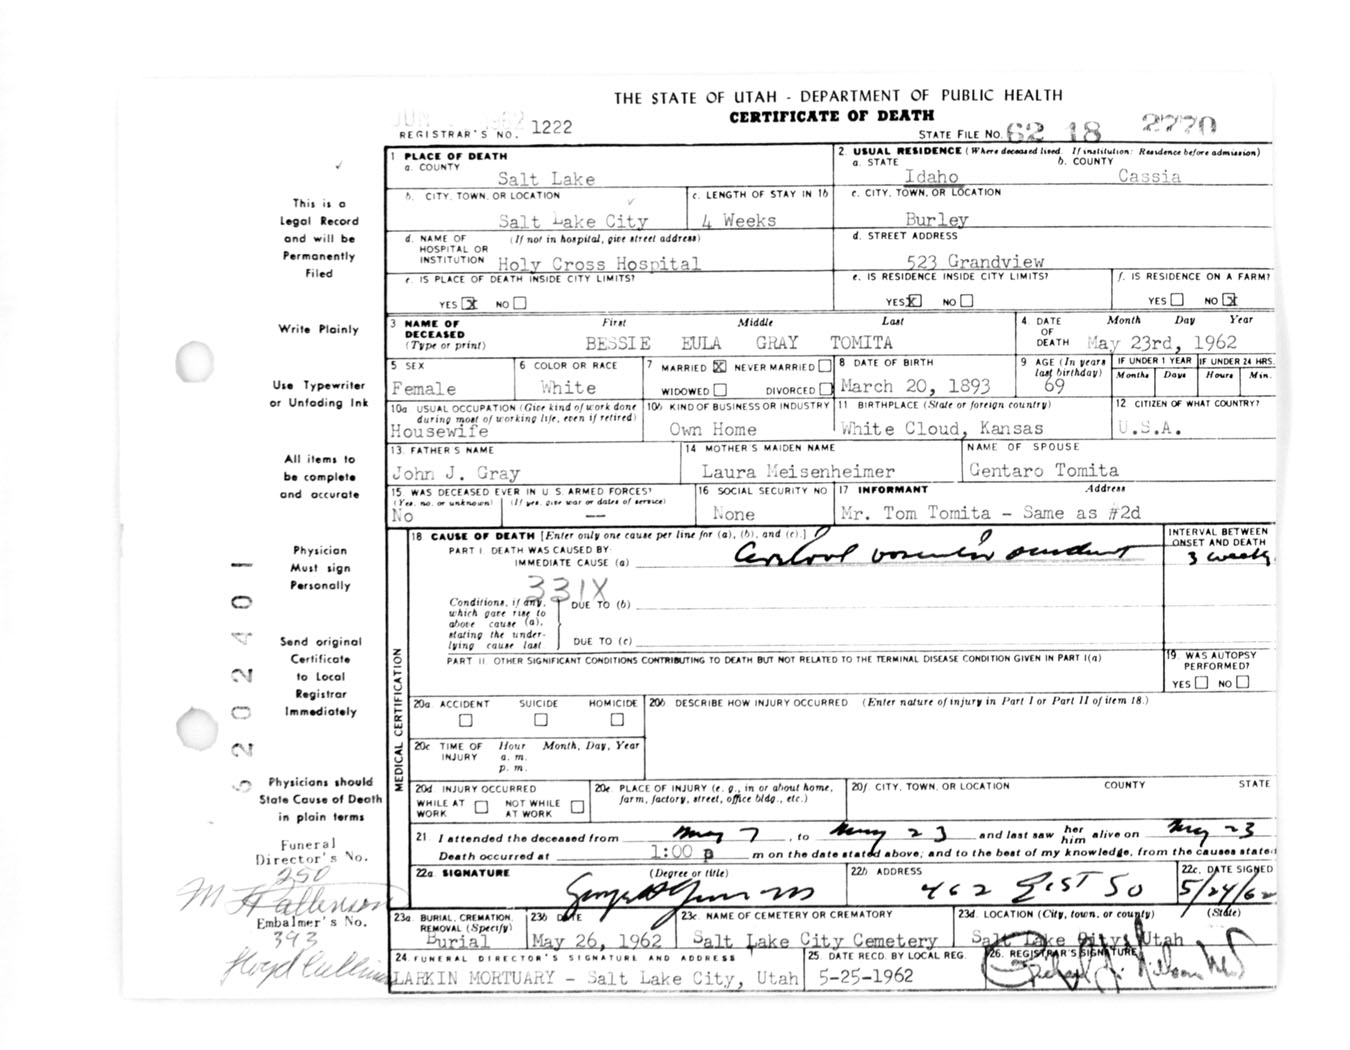 THE STATE OF UTAH - DEPARTMENT OF PUBLIC HEALTH
CERTIFICATE OF DEATH
REGISTRAR'S NO. 1222
STATE FILE NO. 62 18 2770
This is a
Legal Record
and will be
Permanently
Filed
Write Plainly
Use Typewriter
or Unfading Ink
All items to
be complete
and accurate
Physician
Must sign
Personally
Send original
Certificate
to Local
Registrar
Immediately
Physicians should
State Cause of Death
in plain terms
Funeral
Director's No.
250
Embalmer's No.
393
5202401
1 PLACE OF DEATH
a. COUNTY
Salt Lake
2. USUAL RESIDENCE (Where deceased lived. If institution: Residence before admission)
a. STATE b. COUNTY
Idaho Cassia
b. CITY, TOWN, OR LOCATION
Salt Lake City
c. LENGTH OF STAY IN 1b
4 Weeks
c. CITY, TOWN, OR LOCATION
Burley
d. NAME OF HOSPITAL OR INSTITUTION (If not in hospital, give street address)
Holy Cross Hospital
d. STREET ADDRESS
523 Grandview
e. IS PLACE OF DEATH INSIDE CITY LIMITS?
YES X NO
e. IS RESIDENCE INSIDE CITY LIMITS?
YES X NO
f. IS RESIDENCE ON A FARM?
YES NO X
3 NAME OF DECEASED (Type or print) First Middle Last
BESSIE EULA GRAY TOMITA
4. DATE OF DEATH Month Day Year
May 23rd, 1962
5 SEX
Female
6 COLOR OR RACE
White
7 MARRIED X NEVER MARRIED
WIDOWED DIVORCED
8 DATE OF BIRTH
March 20, 1893
9 AGE (In years last birthday)
69
IF UNDER 1 YEAR IF UNDER 24 HRS.
Months Days Hours Min.
10a USUAL OCCUPATION (Give kind of work done during most of working life, even if retired)
Housewife
10b KIND OF BUSINESS OR INDUSTRY
Own Home
11 BIRTHPLACE (State or foreign country)
White Cloud, Kansas
12 CITIZEN OF WHAT COUNTRY?
U.S.A.
13. FATHER'S NAME
John J. Gray
14 MOTHER'S MAIDEN NAME
Laura Meisenheimer
NAME OF SPOUSE
Gentaro Tomita
15 WAS DECEASED EVER IN U S. ARMED FORCES?
(Yes, no, or unknown) (If yes, give war or dates of service)
No --
16 SOCIAL SECURITY NO
None
17 INFORMANT Address
Mr. Tom Tomita - Same as #2d
MEDICAL CERTIFICATION
18 CAUSE OF DEATH [Enter only one cause per line for (a), (b), and (c).]
PART I. DEATH WAS CAUSED BY:
IMMEDIATE CAUSE (a) Cerebral vascular accident
INTERVAL BETWEEN ONSET AND DEATH
3 weeks
331X
Conditions, if any, which gave rise to above cause (a), stating the underlying cause last
DUE TO (b)
DUE TO (c)
PART II. OTHER SIGNIFICANT CONDITIONS CONTRIBUTING TO DEATH BUT NOT RELATED TO THE TERMINAL DISEASE CONDITION GIVEN IN PART I(a)
19 WAS AUTOPSY PERFORMED?
YES NO
20a. ACCIDENT SUICIDE HOMICIDE
20b DESCRIBE HOW INJURY OCCURRED (Enter nature of injury in Part I or Part II of item 18.)
20c TIME OF INJURY Hour Month, Day, Year
a. m.
p. m.
20d. INJURY OCCURRED
WHILE AT WORK NOT WHILE AT WORK
20e. PLACE OF INJURY (e. g., in or about home, farm, factory, street, office bldg., etc.)
20f. CITY, TOWN, OR LOCATION COUNTY STATE
21. I attended the deceased from May 7, to May 23 and last saw her him alive on May 23
Death occurred at 1:00 p m on the date stated above; and to the best of my knowledge, from the causes stated
22a. SIGNATURE (Degree or title)
22b ADDRESS
462 East So
22c. DATE SIGNED
5/24/62
23a. BURIAL, CREMATION, REMOVAL (Specify)
Burial
23b DATE
May 26, 1962
23c. NAME OF CEMETERY OR CREMATORY
Salt Lake City Cemetery
23d. LOCATION (City, town, or county) (State)
Salt Lake City, Utah
24. FUNERAL DIRECTOR'S SIGNATURE AND ADDRESS
LARKIN MORTUARY - Salt Lake City, Utah
25. DATE RECD. BY LOCAL REG.
5-25-1962
26. REGISTRAR'S SIGNATURE